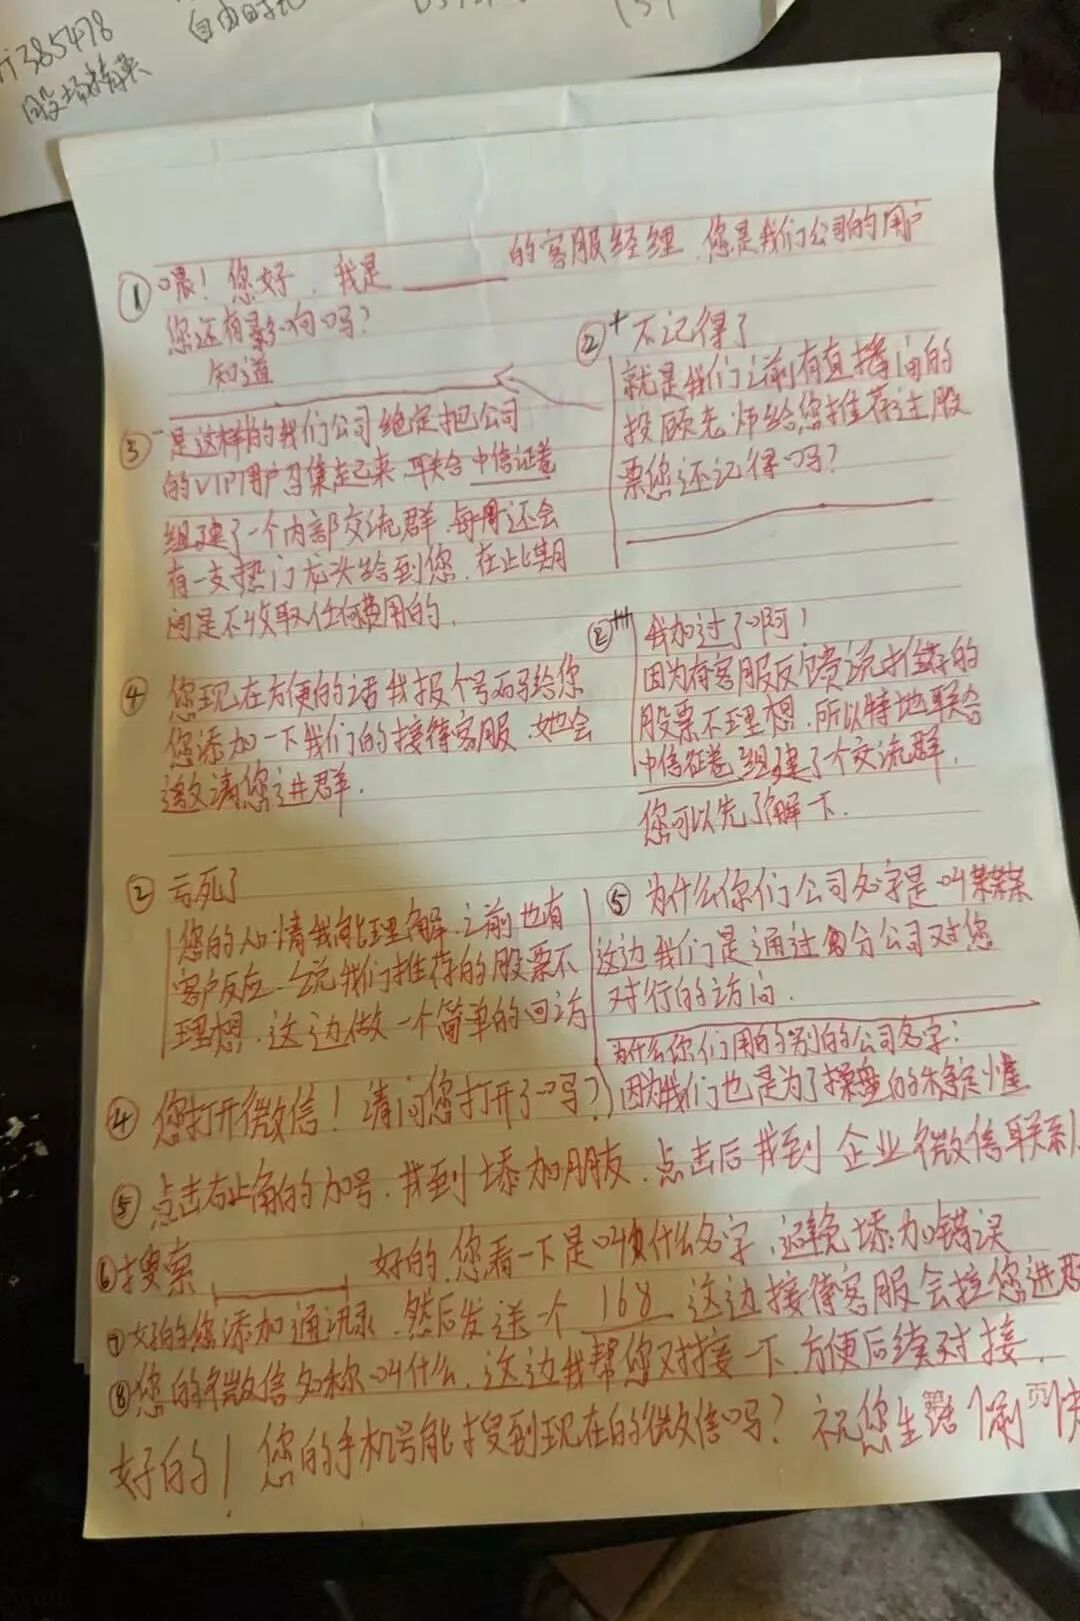 385478
股市精英
自由时代
① 喂！您好，我是______的客服经理，您是我们公司的用户
您还有影响吗？
知道
②+ 不记得了
就是我们之前有直播间的
投顾老师给您推荐过股
票您还记得吗？
③ 是这样的我们公司绝定把公司
的VIP用户召集起来，联合中信证卷
组建了一个内部交流群，每周还会
有一支热门龙头给到您，在此期
间是不收取任何费用的，
④ 您现在方便的话我报个号码给您
您添加一下我们的接待客服，她会
邀请您进群，
②+++ 我加过了啊！
因为有客服反馈说推荐的
股票不理想，所以特地联合
中信征卷组建了个交流群，
您可以先了解一下．
② 亏死了
您的心情我能理解，之前也有
客户反应，说我们推荐的股票不
理想，这边做一个简单的回访
⑤ 为什么你们公司名字是叫某某某
这边我们是通过分公司对您
对行的访问．
为什么你们用的别的公司名字：
因为我们也是为了操盘的稳定性
④ 您打开微信！请问您打开了吗？
⑤ 点击右上角的加号，找到添加朋友，点击后找到企业微信联系人
⑥ 搜索______ 好的，您看一下是叫什么名字，避免添加错误
⑦ 好的您添加通讯录，然后发送一个 168 这边接待客服会拉您进群
⑧ 您的微信名称叫什么，这边我帮您对接一下，方便后续对接，
好的！您的手机号能搜到现在的微信吗？祝您生活愉快